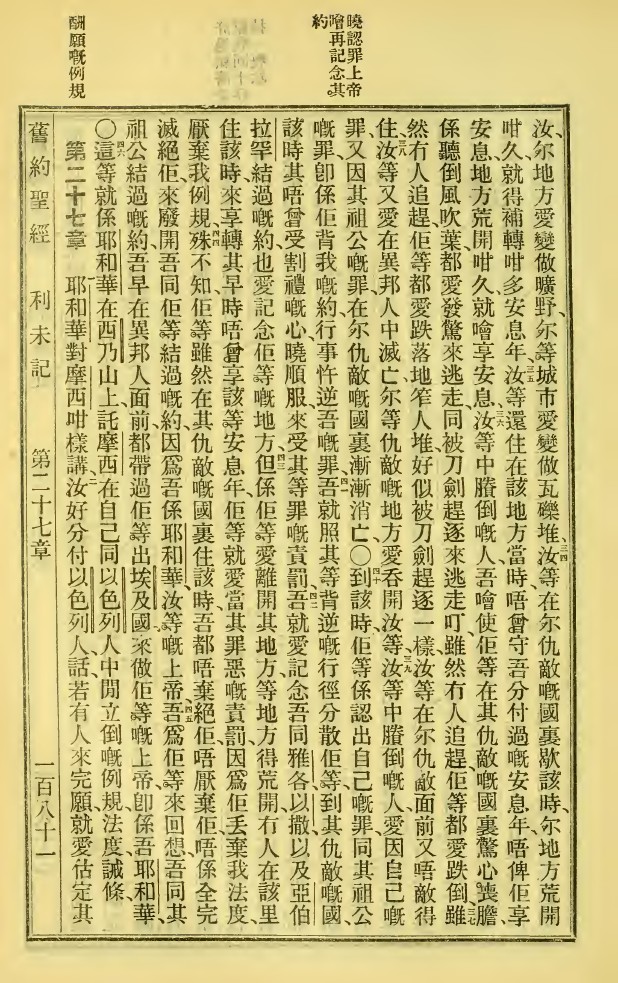 曉認罪上帝
噲再記念其
約
酬願嘅例規
汝、尔地方愛變做曠野、尔等城市愛變做瓦礫堆、三四汝等在尔仇敵嘅國裏歇該時、尔地方荒開
咁久、就得補轉咁多安息年、三五汝等還住在該地方當時、唔曾守吾分付過嘅安息年、唔俾佢享
安息、地方荒開咁久、就噲享安息、三六汝等中賸倒嘅人、吾噲使佢等在其仇敵嘅國裏驚心喪膽、
係聽倒風吹葉都愛發驚來逃走、同被刀劍趕逐來逃走叮、雖然冇人追趕、佢等都愛跌倒、三七雖
然冇人追趕、佢等都愛跌落地、笮人堆、好似被刀劍趕逐一樣、汝等在尔仇敵面前又唔敵得
住、三八汝等又愛在異邦人中滅亡、尔等仇敵嘅地方愛吞開汝等、三九汝等中賸倒嘅人、愛因自己嘅
罪、又因其祖公嘅罪、在尔仇敵嘅國裏漸漸消亡、〇四十到該時、佢等係認出自己嘅罪、同其祖公
嘅罪、卽係佢背我嘅約、行事忤逆吾嘅罪、四一吾就照其等背逆嘅行徑、分散佢等、到其仇敵嘅國、
該時其唔曾受割禮嘅心、曉順服來受其等罪嘅責罰、四二吾就愛記念吾同雅各、以撒、以及亞伯
拉罕結過嘅約、也愛記念佢等嘅地方、四三但係佢等愛離開其地方、等地方得荒開、冇人在該里
住、該時來享轉其早時唔曾享該等安息年、佢等就愛當其罪惡嘅責罰、因爲佢丢棄我法度、
厭棄我例規、四四殊不知佢等雖然在其仇敵嘅國裏住、該時吾都唔棄絕佢、唔厭棄佢、唔係全完
滅絕佢、來廢開吾同佢等結過嘅約、因爲吾係耶和華、汝等嘅上帝、四五吾爲佢等來回想、吾同其
祖公結過嘅約、吾早在異邦人面前、都帶過佢等出埃及國、來做佢等嘅上帝、卽係吾耶和華、
〇四六這等就係耶和華在西乃山上、託摩西在自己同以色列人中間、立倒嘅例規、法度、誡條、
第二十七章 一耶和華對摩西咁樣講、二汝好分付以色列人話、若有人來完願、就愛估定其
舊約聖經 利未記 第二十七章 一百八十一